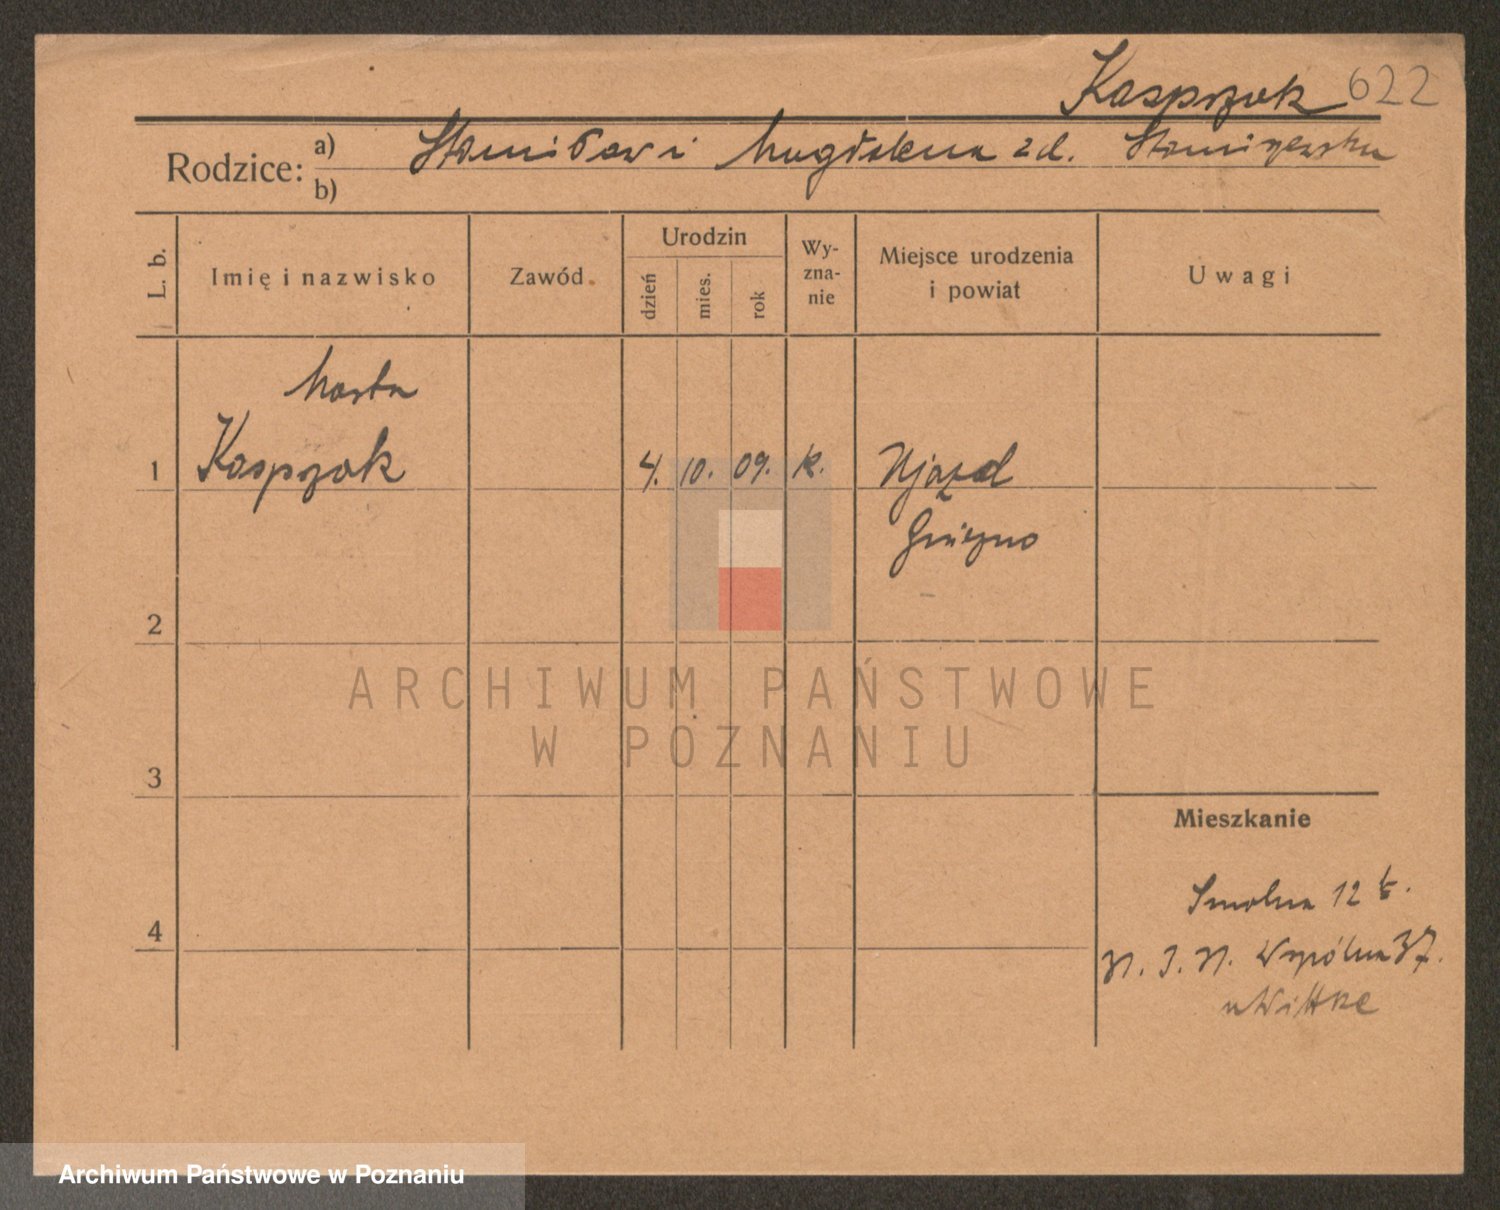 Kasprzak 622
Rodzice: a) Stanisław i Magdalena z d. Staniszewska
b)
L. b.
Imię i nazwisko
Zawód
Urodzin
dzień
mies.
rok
Wy-
zna-
nie
Miejsce urodzenia
i powiat
Uwagi
Marta
1 Kasprzak 4. 10. 09. k. Ujazd
Gniezno
2
ARCHIWUM PAŃSTWOWE
W POZNANIU
3
Mieszkanie
Smolna 12
4
Wspólna 37.
u Wittke
Archiwum Państwowe w Poznaniu